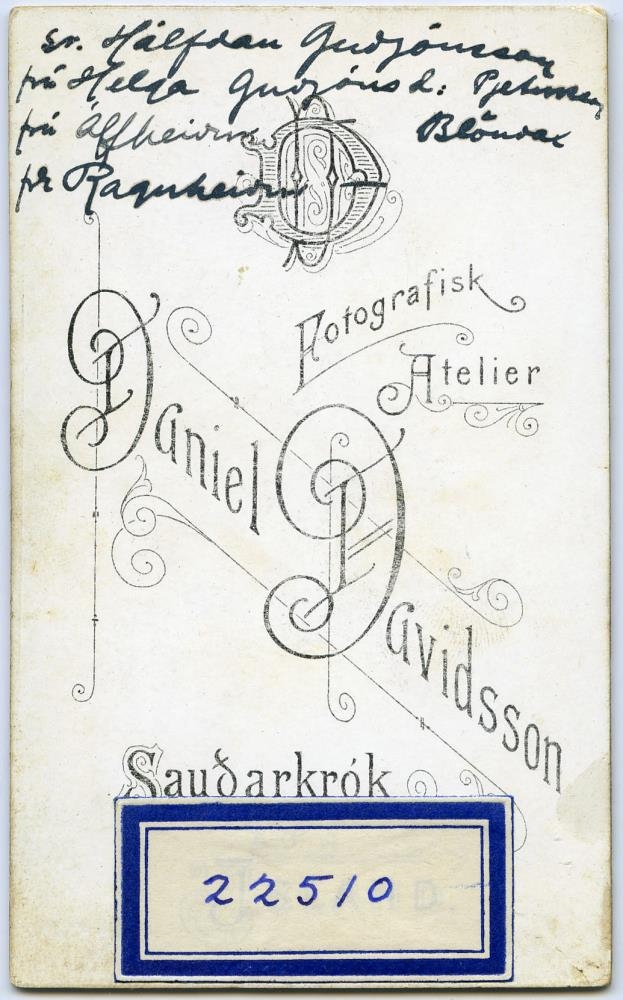 sr. Hálfdan Gudjónsson
frú Helga Gudjónsd:
frú Álfheiður Blöndal
frk Ragnheiður —
DD
Fotografisk
Atelier
Daniel Davidsson
Sauðarkrók
22510